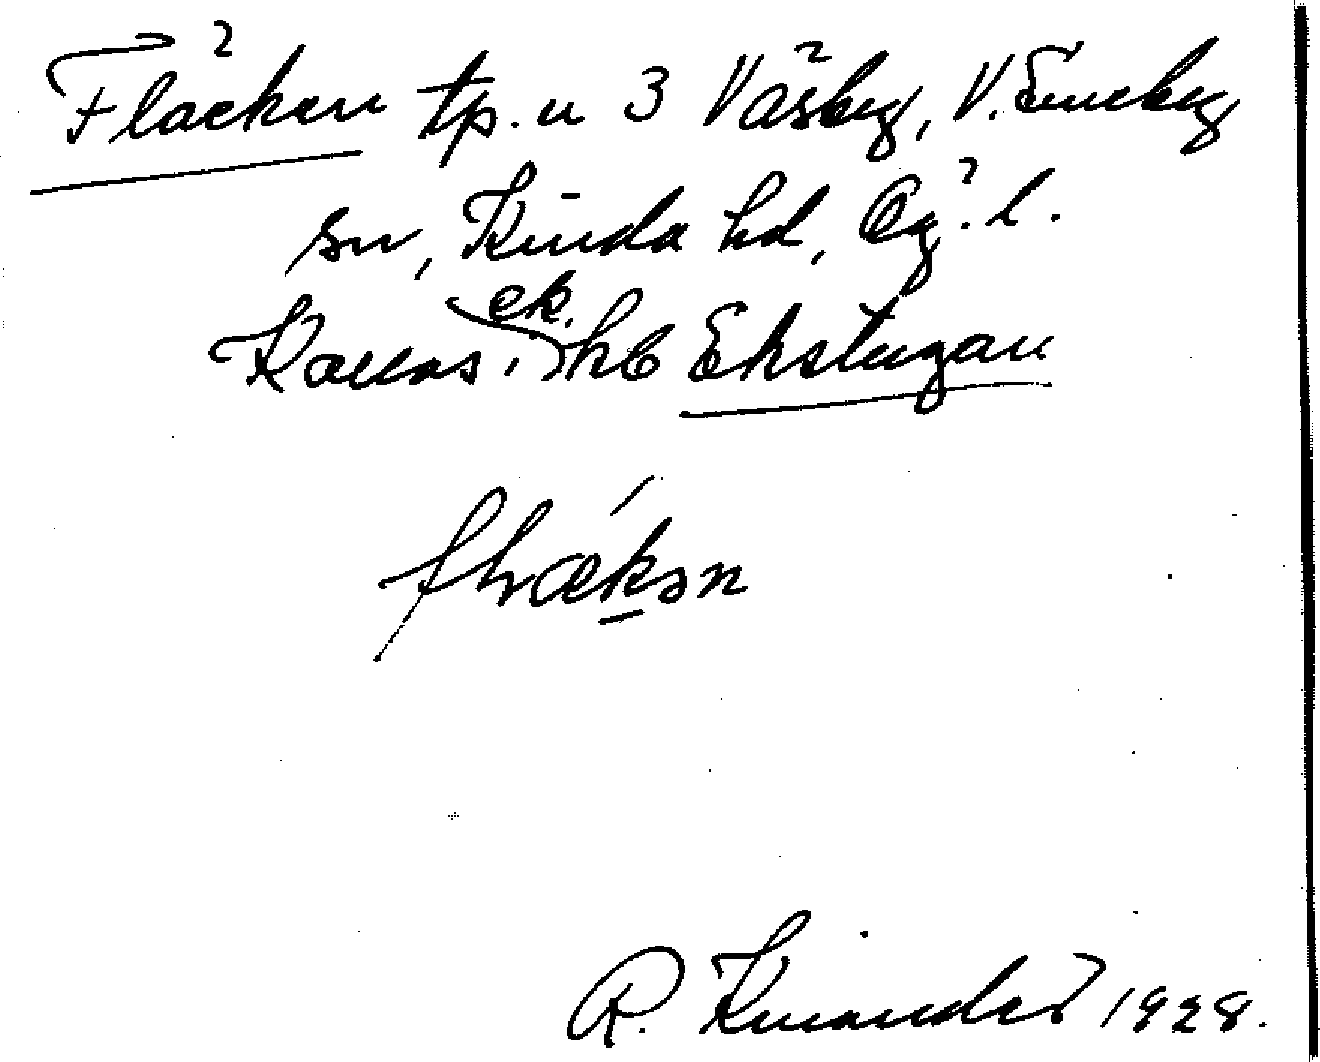 Fläcken tp. u 3 Väsby, V. Eneby
sn, Kinda hd, Ög. l.
Kallas i ek. hb Ekstugan
flrækən
R. Kinander 1928.